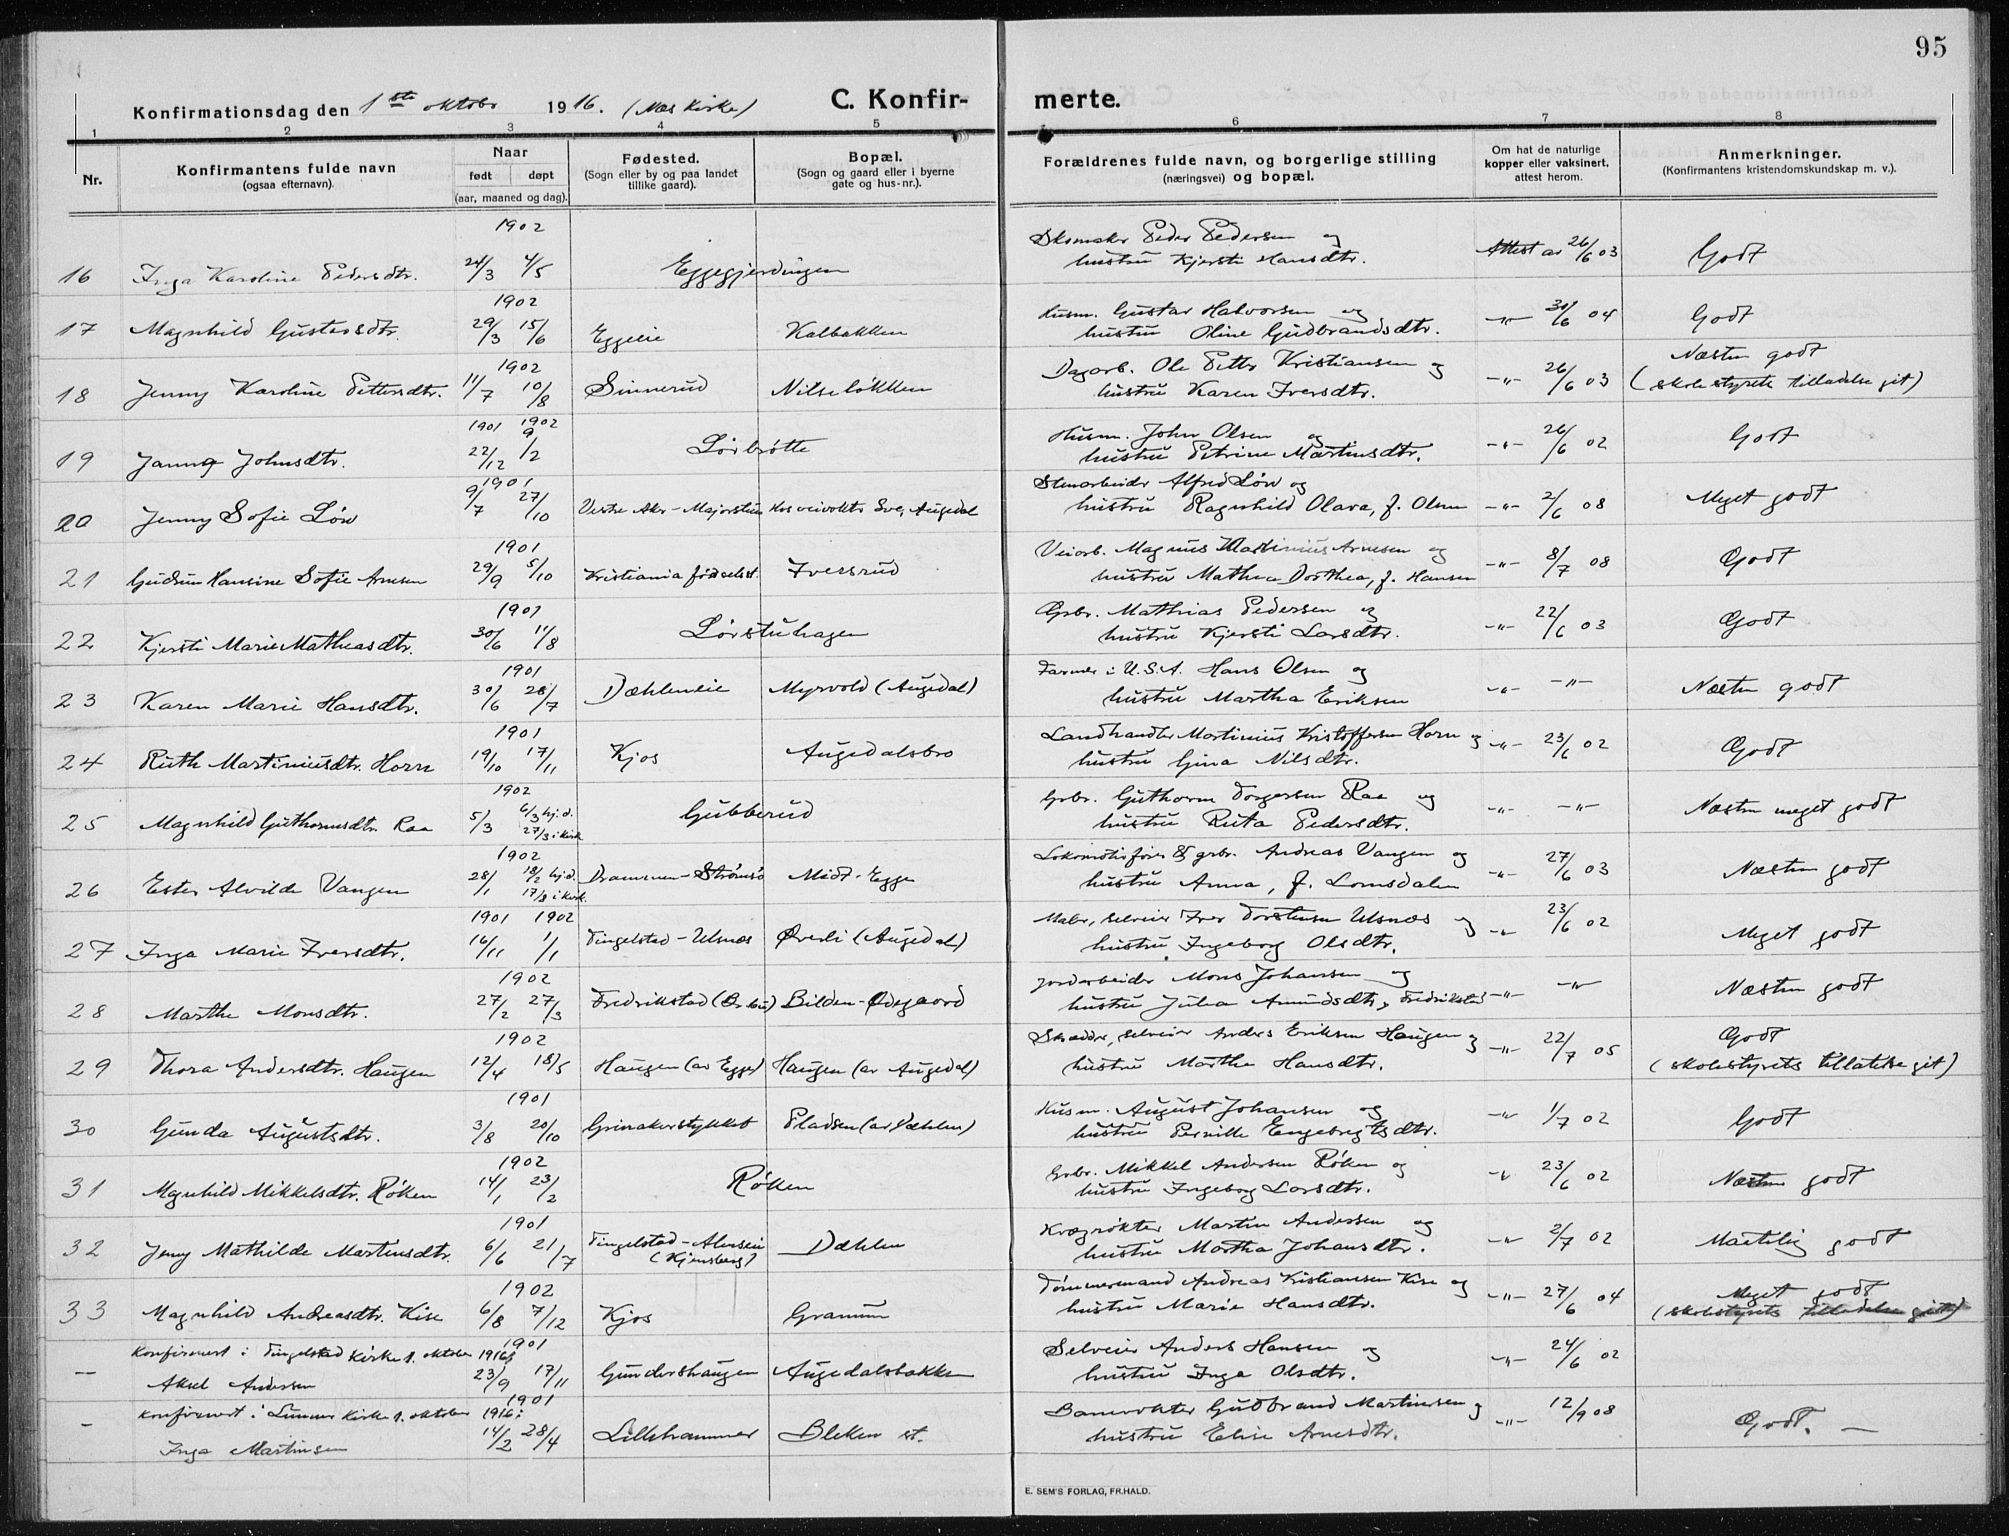 95
Konfirmationsdag den 1ste oktober 1916. (Næs Kirke) C. Konfir- merte.
1 2 3 4 5 6 7 8
Nr. Konfirmantens fulde navn (ogsaa efternavn). Naar født døpt (aar, maaned og dag). Fødested. (Sogn eller by og paa landet tillike gaard). Bopæl. (Sogn og gaard eller i byerne gate og hus-nr.). Forældrenes fulde navn, og borgerlige stilling (næringsvei) og bopæl. Om hat de naturlige kopper eller vaksinert, attest herom. Anmerkninger. (Konfirmantens kristendomskundskap m. v.).
1902
16 Inga Karoline Pedersdtr. 24/3 4/5 Eggegjerdingen Skomaker Peder Pedersen og hustru Kjersti Hansdtr. Attest av 26/6 03 Godt
1902
17 Magnhild Gustavsdtr. 29/3 15/6 Eggeeie Kalbakken Husm. Gustav Halvorsen og hustru Oline Gudbrandsdtr. -"- 30/6 04 Godt
1902
18 Jenny Karoline Pettersdtr. 11/7 10/8 Sinnerud Nilseløkken Dagarb. Ole Petter Kristiansen og hustru Karen Iversdtr. -"- 26/6 03 Næsten godt (skolestyrets tilladelse git)
1901 1902
19 Janna Johnsdtr. 22/12 9/2 Lørbråtte Husm. John Olsen og hustru Petrine Martinsdtr. -"- 26/6 02 Godt
1901
20 Jenny Sofie Løw 9/7 27/10 Vestre Aker - Majorstuen Hos veivokter Sve, Augedal Stenarbeider Alfred Løw og hustru Ragnhild Olava, f. Olsen -"- 2/6 08 Meget godt
1901
21 Gudrun Hansine Sofie Arnesen 29/9 5/10 Kristiania fødselsst. Iversrud Veiarb. Magnus Martinius Arnesen og hustru Mathea Dorthea, f. Hansen -"- 8/7 08 Godt
1901
22 Kjersti Marie Mathiasdtr. 30/6 11/8 Lørstuhagen Grbr. Mathias Pedersen og hustru Kjersti Larsdtr. -"- 22/6 03 Godt
1901
23 Karen Marie Hansdtr. 30/6 28/7 Dæhleneie Myrvold (Augedal) Farmer i U.S.A. Hans Olsen og hustru Martha Eriksen -"- -"- Næsten godt
1901
24 Ruth Martiniusdtr. Horn 19/10 17/11 Kjos Augedalsbro Landhandler Martinius Kristoffersen Horn og hustru Gina Nilsdtr. -"- 23/6 02 Godt
1902
25 Magnhild Guthormsdtr. Raa 5/3 6/3 hj.d. 27/3 i kirk. Gubberud Grbr. Guthorm Torgersen Raa og hustru Ruta Pedersdtr. -"- -"- Næsten meget godt
1902
26 Ester Alvilde Vangen 28/1 18/2 hj.d. 17/8 i kirk. Drammen - Strømsø Midt-Egge Lokomotivfører & grbr. Andreas Vangen og hustru Anna, f. Lomsdalen -"- 27/6 03 Næsten godt
1901 1902
27 Inga Marie Iversdtr. 16/11 1/1 Tingelstad - Ulsnæs Øverli (Augedal) Maler, selveier Iver Torstensen Ulsnæs og hustru Ingeborg Olsdtr. -"- 23/6 02 Meget godt
1902
28 Marthe Monsdtr. 27/2 27/3 Fredrikstad Bilden-Ødegaard Jordarbeider Mons Johansen og hustru Julia Amundsdtr, Fredrikstad -"- -"- Næsten godt
1902
29 Thora Andersdtr. Haugen 12/4 18/5 Haugen (av Egge) Haugen (av Augedal) Skræder, selveier Anders Eriksen Haugen og hustru Marthe Hansdtr. -"- 22/7 05 Godt (skolestyrets tillatelse git)
1901
30 Gunda Augustsdtr. 3/8 20/10 Grinakerstykket Pladsen (av Dæhlen) Husm. August Johansen og hustru Pernille Engebregtsdtr. -"- 1/7 02 Godt
1902
31 Magnhild Mikkelsdtr. Røken 14/1 23/2 Røken Grbr. Mikkel Andersen Røken og hustru Ingeborg Larsdtr. -"- 23/6 02 Næsten godt
1901
32 Jenny Mathilde Martinsdtr. 6/6 21/7 Tingelstad - Almseie (Kjensberg) Dæhlen Krøgrøkter Martin Andersen og hustru Martha Johansdtr. -"- 2/7 02 Maatelig godt
1902
33 Magnhild Andreasdtr. Kise 6/8 7/12 Kjos Granum Tømmermand Andreas Kristiansen Kise og hustru Marie Hansdtr. -"- 27/6 04 Meget godt (skolestyrets tilladelse git)
Konfirmert i Tingelstad Kirke 1. oktober 1916: 1901
— Aksel Andersen 23/9 17/11 Gundershaugen Augedalsbakken Selveier Anders Hansen og hustru Inga Olsdtr. -"- 24/6 02
Konfirmert i Lunner Kirke 1. oktober 1916: 1901
- Inga Martinsen 14/2 28/4 Lillehammer Bleken st. Banevokter Gudbrand Martinsen og hustru Elise Arnesdtr. -"- 12/9 08 Godt. —
E. SEM'S FORLAG, FR.HALD.